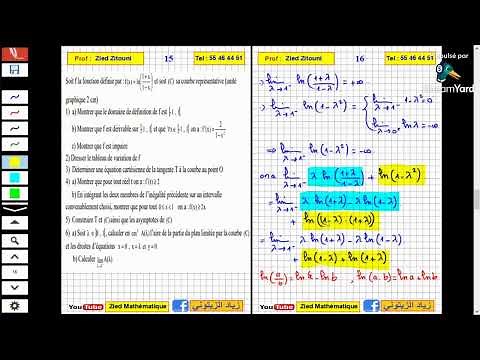 Prof : Zied Zitouni
15
Tel : 55 46 44 51
Soit f la fonction définie par : f(x) = ln(1+x / 1−x) et soit (C) sa courbe représentative (unité
graphique 2 cm)
1) a) Montrer que le domaine de définition de f est ]-1, 1[
b) Montrer que f est dérivable sur ]-1, 1[ et que ∀x ∈ ]-1, 1[ on a : f'(x) = 2 / 1−x²
c) Montrer que f est impaire
2) Dresser le tableau de variation de f
3) Déterminer une équation cartésienne de la tangente T à la courbe au point O
4) a) Montrer que pour tout réel t on a : f'(t) ≥ 2
b) En intégrant les deux membres de l'inégalité précédente sur un intervalle
convenablement choisi, montrer que pour tout 0 ≤ x < 1 on a f(x) ≥ 2x
5) Construire T et (C) ainsi que les asymptotes de (C)
6) a) Soit λ ∈ ]0, 1[, calculer en cm² A(λ) l'aire de la partie du plan limitée par la courbe (C)
et les droites d'équations x = 0, x = λ et y = 0
b) Calculer lim A(λ)
YouTube
Zied Mathématique
زياد الزيتوني
Prof : Zied Zitouni
16
Tel : 55 46 44 51
> lim λ→1⁻ ln(1+λ / 1−λ) = +∞
> lim λ→1⁻ ln(1−λ²) = { lim λ→1⁻ 1−λ² = 0
lim λ→0⁺ ln λ = −∞
⇒ lim λ→1⁻ ln(1−λ²) = −∞
on a lim λ→1⁻ λ ln(1+λ / 1−λ) + ln(1−λ²)
= lim λ→1⁻ λ ln(1+λ) − λ ln(1−λ)
+ ln((1−λ)·(1+λ))
= lim λ→1⁻ λ ln(1+λ) − λ ln(1−λ)
+ ln(1−λ) + ln(1+λ)
ln(a/b) = ln a − ln b , ln(a·b) = ln a + ln b
YouTube
Zied Mathématique
زياد الزيتوني
pulsé par
eamYard